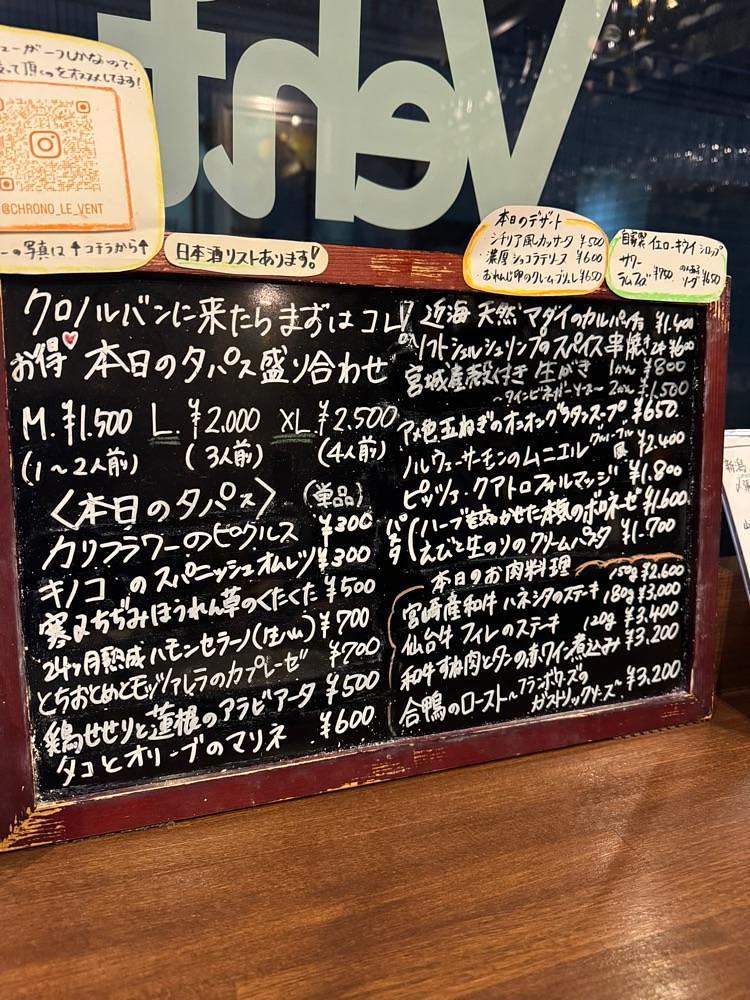 Vent
ューが一つしかないので、
って頂くのをオススメしてます!
@CHRONO_LE_VENT
ーの写真は↑コチラから↑
日本酒リストあります!
本日のデザート
・シチリア風カッサータ ¥500
・濃厚ショコラテリーヌ ¥600
・おれんじ卵のクレームブリュレ ¥650
自家製 イエローキウイシロップ
サワー
ラムフィズ ¥750
ソーダ ¥650
クロノルバンに来たらまずはコレ!
お得♥本日のタパス盛り合わせ
M. ¥1.500 L. ¥2.000 XL. ¥2.500
(1〜2人前) (3人前) (4人前)
〈本日のタパス〉 (単品)
カリフラワーのピクルス ¥300
キノコのスパニッシュオムレツ ¥300
寒ちぢみほうれん草のくたくた ¥500
24ヶ月熟成ハモンセラーノ(生ハム) ¥700
とちおとめとモッツァレラのカプレーゼ ¥700
鶏せせりと蓮根のアラビアータ ¥500
タコとオリーブのマリネ ¥600
近海 天然 マダイのカルパッチョ ¥1.400
ソフトシェルシュリンプのスパイス串焼き 2本 ¥600
宮城産殻付き 生がき 1コ ¥800
〜ワインビネガーソース〜 2コ ¥1,500
アメ色玉ねぎのオニオングラタンスープ ¥650.
ノルウェーサーモンのムニエル グルノーブル風 ¥2.400
ピッツァ・クアトロフォルマッジ ¥1.800
パスタ
ハーブを効かせた本気のボロネーゼ ¥1.600.
えびと生のりのクリームパスタ ¥1.700
本日のお肉料理
宮崎産和牛 ハネシタのステーキ 150g ¥2.600
180g ¥3,000
仙台牛 フィレのステーキ 120g ¥3.400
和牛すね肉とタンの赤ワイン煮込み ¥3,200
合鴨のロースト〜フランボワーズの
ガストリックソース〜 ¥3,200
新潟